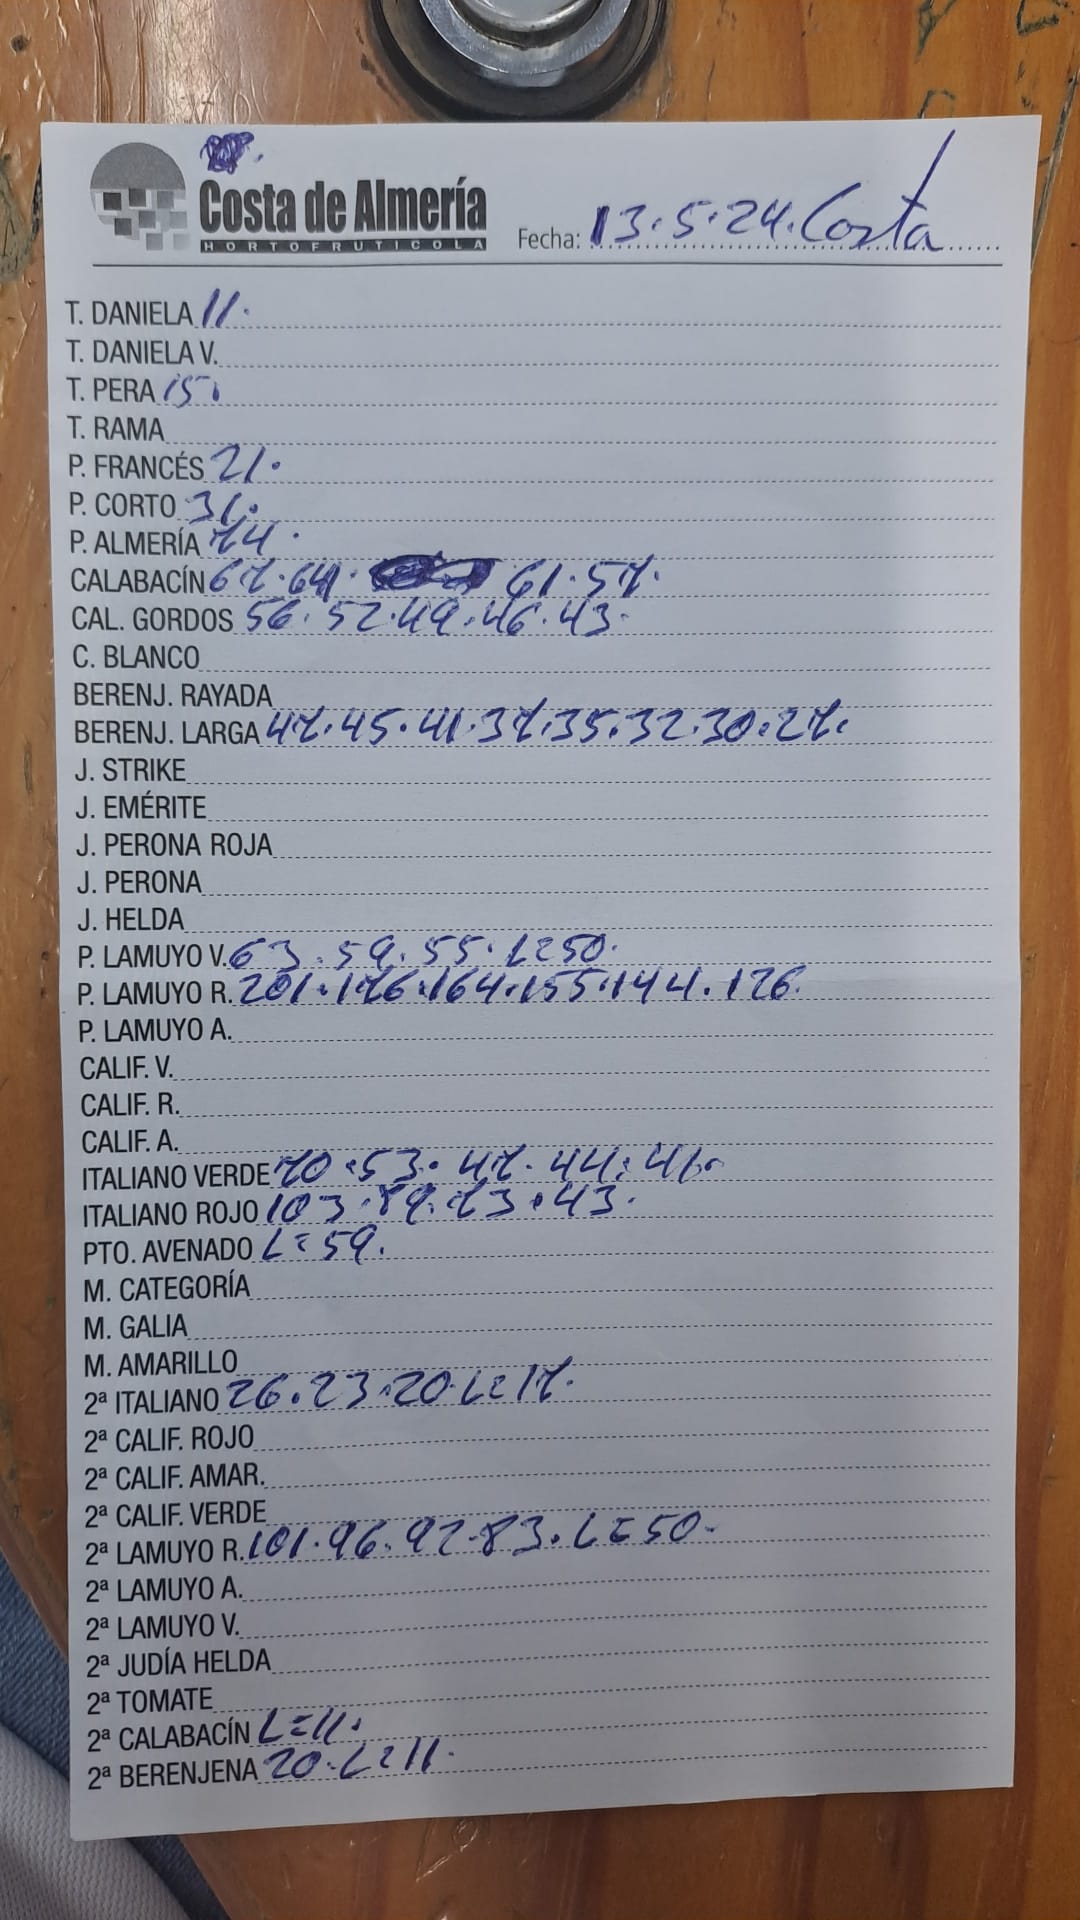 Costa de Almería
HORTOFRUTICOLA
Fecha: 13.5.24. Costa
T. DANIELA 11.
T. DANIELA V.
T. PERA 15.
T. RAMA
P. FRANCÉS 21.
P. CORTO 31.
P. ALMERÍA 74.
CALABACÍN 67.64. 61.57.
CAL. GORDOS 56.52.49.46.43.
C. BLANCO
BERENJ. RAYADA
BERENJ. LARGA 47.45.41.37.35.32.30.27.
J. STRIKE
J. EMÉRITE
J. PERONA ROJA
J. PERONA
J. HELDA
P. LAMUYO V. 63.59.55.L=50.
P. LAMUYO R. 201.176.164.155.144.126.
P. LAMUYO A.
CALIF. V.
CALIF. R.
CALIF. A.
ITALIANO VERDE 70.53.47.44.41.
ITALIANO ROJO 103.89.73.43.
PTO. AVENADO L=59.
M. CATEGORÍA
M. GALIA
M. AMARILLO
2ª ITALIANO 26.23.20.L=17.
2ª CALIF. ROJO
2ª CALIF. AMAR.
2ª CALIF. VERDE
2ª LAMUYO R. 101.96.92.83.L=50.
2ª LAMUYO A.
2ª LAMUYO V.
2ª JUDÍA HELDA
2ª TOMATE
2ª CALABACÍN L=11.
2ª BERENJENA 20.L=11.